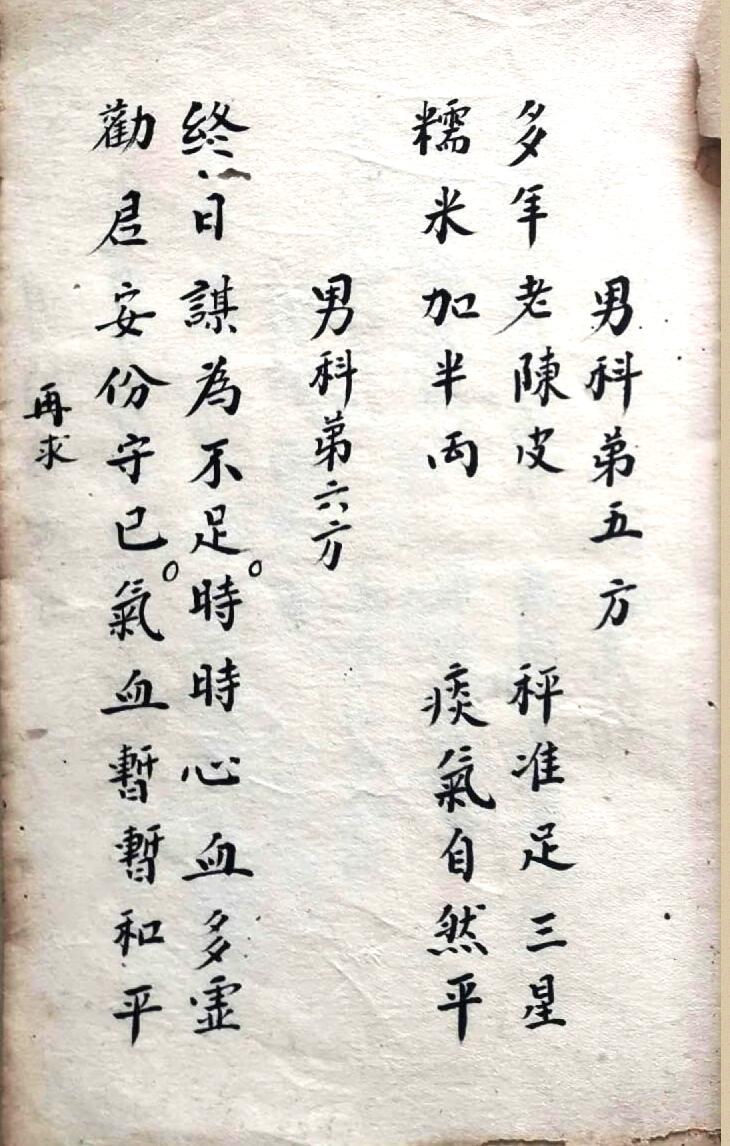 男科第五方
多年老陳皮 秤准足三星
糯米加半両 痰氣自然平
男科第六方
終日謀為不足。時時心血多虛
勸君安份守已。氣血暫暫和平
再求